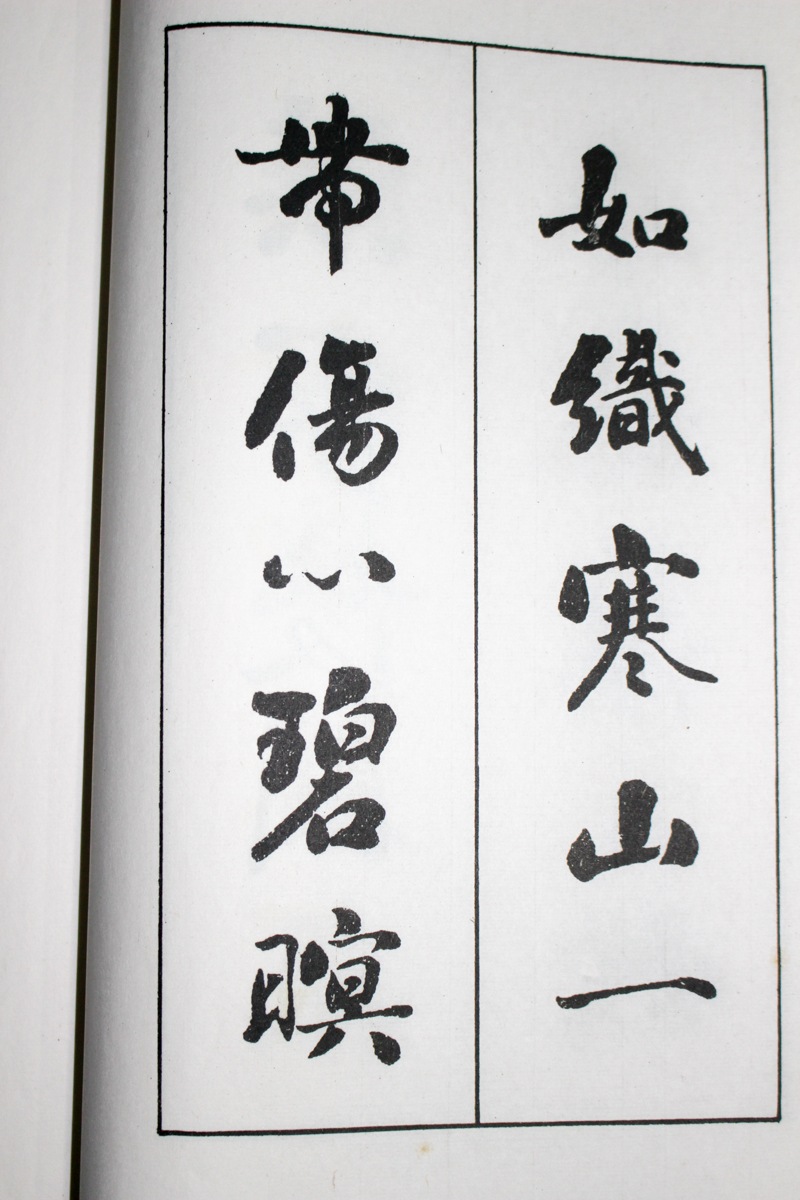 如織寒山一
帶傷心碧暝